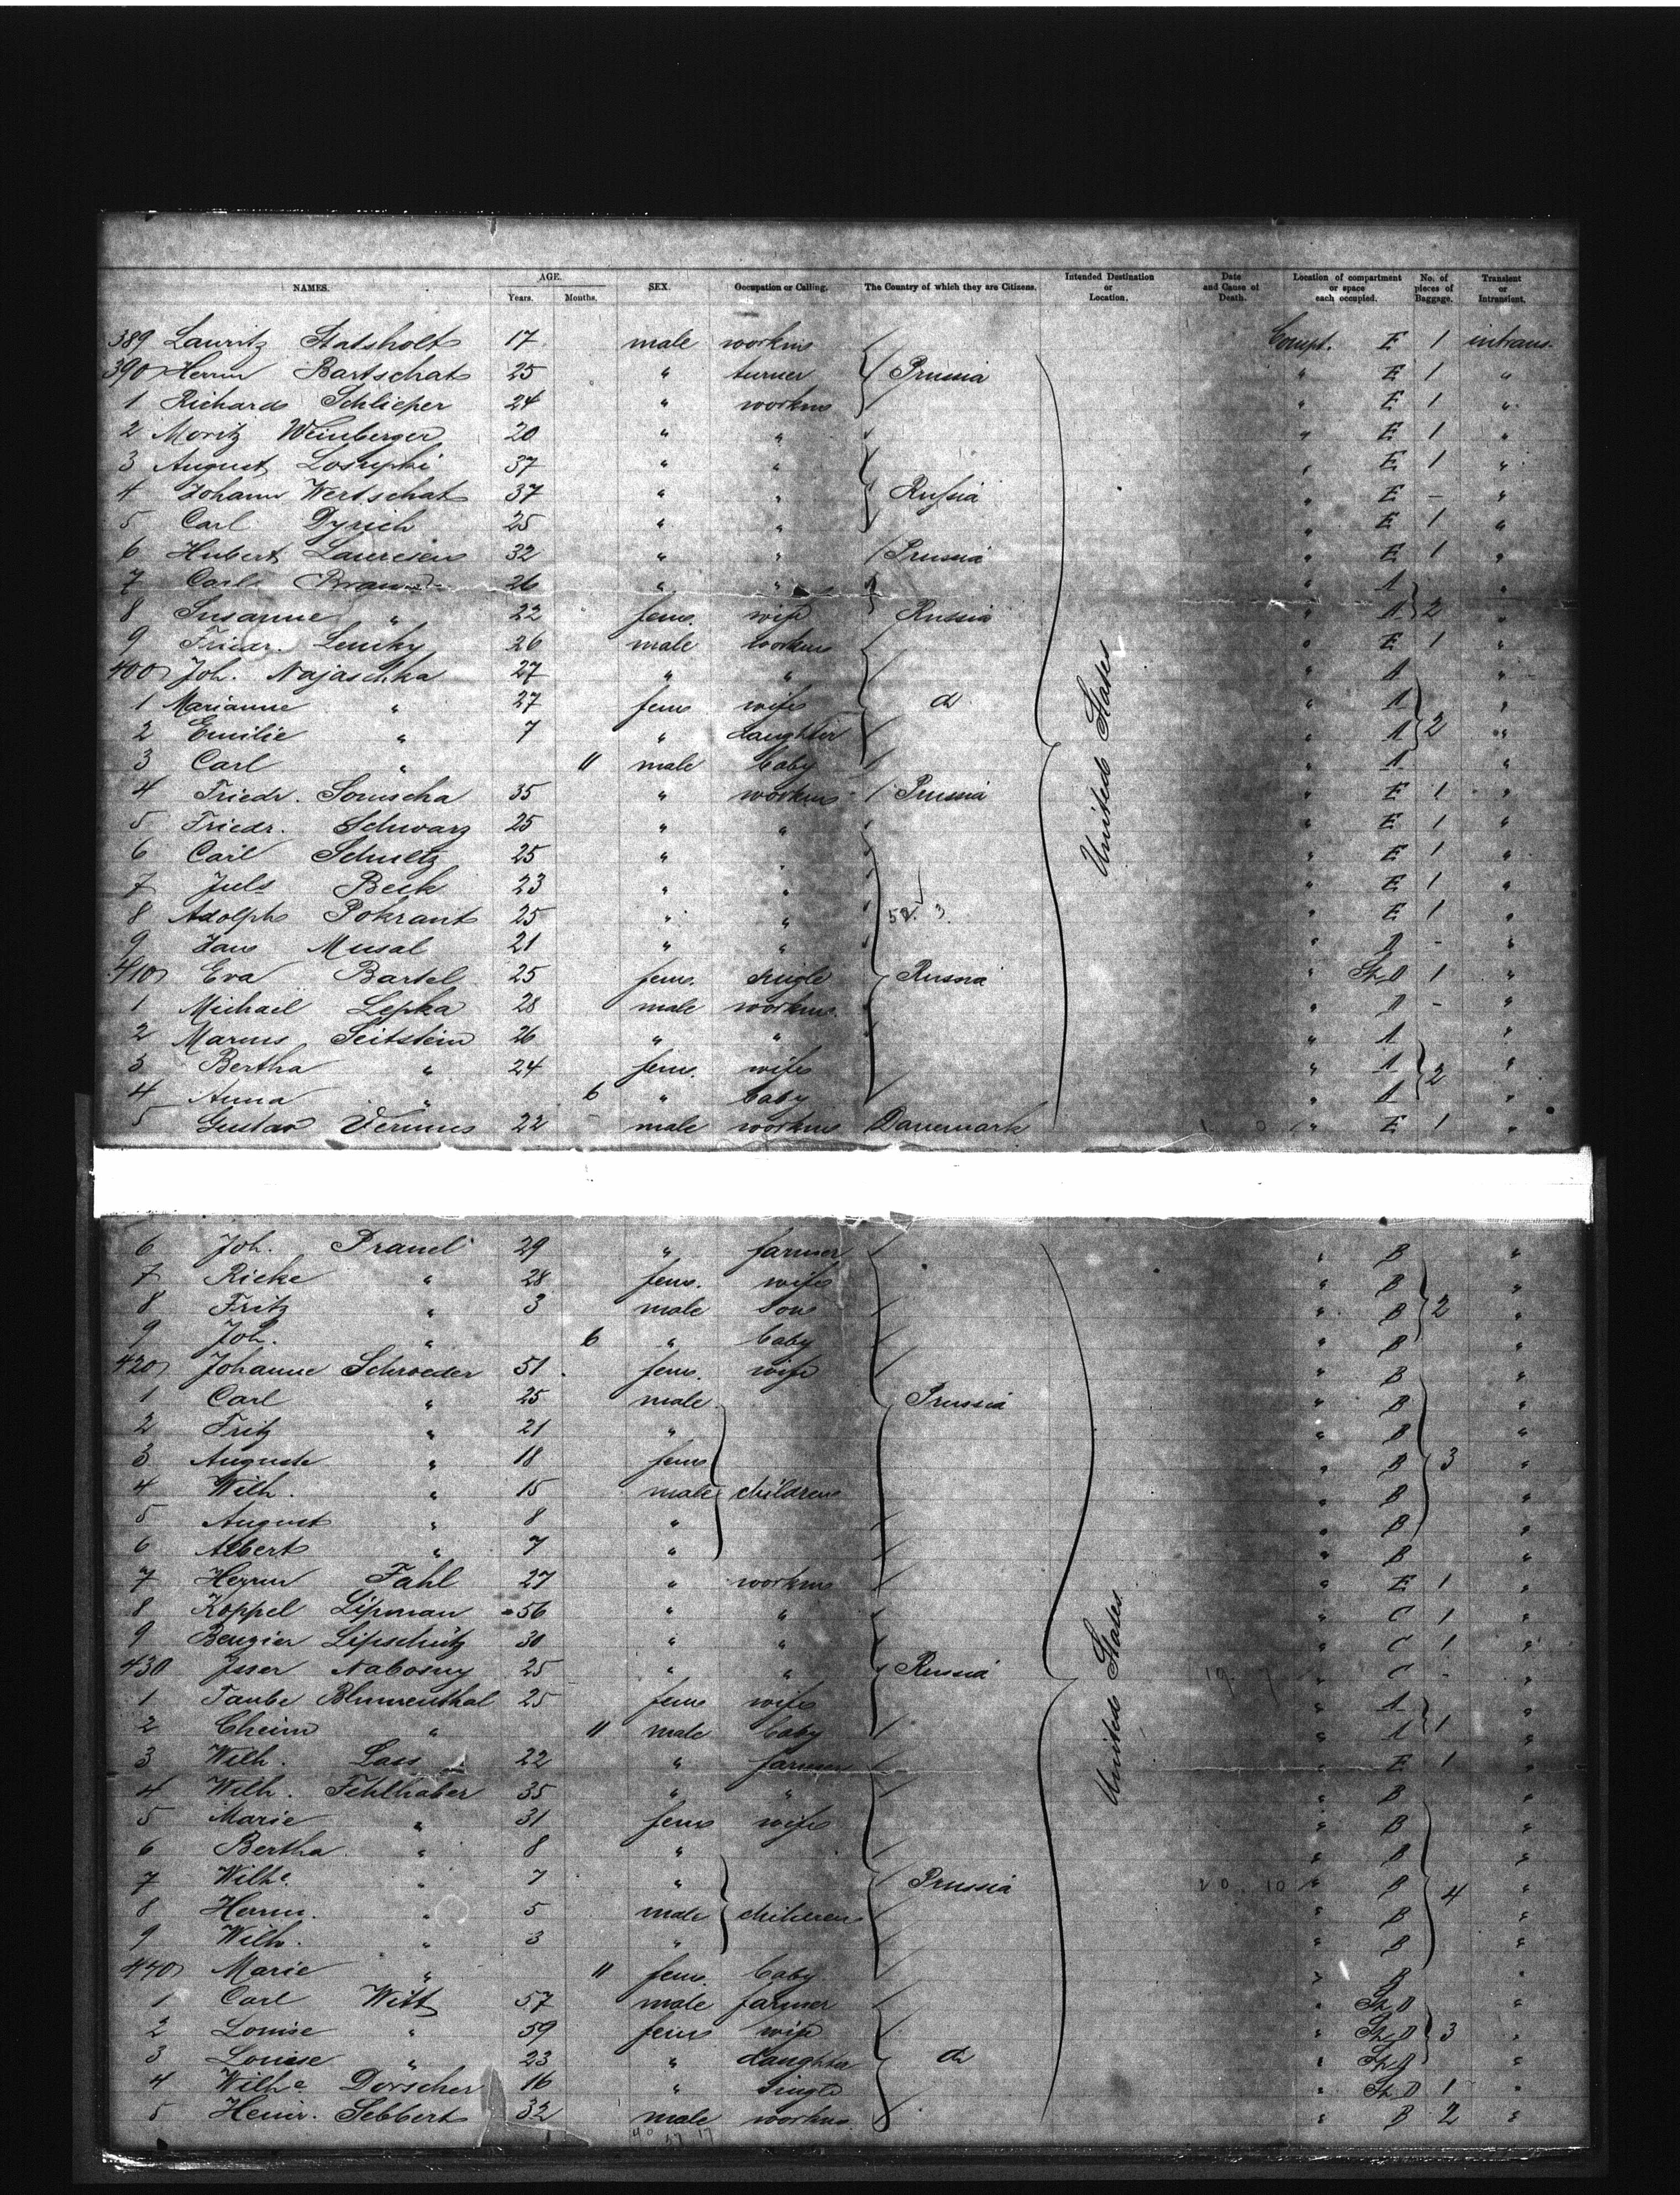 NAMES. AGE. Years. Months. SEX. Occupation or Calling. The Country of which they are Citizens. Intended Destination or Location. Date and Cause of Death. Location of compartment or space each occupied. No. of pieces of Baggage. Transient or Intransient.
389 Lauritz Statsholt 17 male workm Compt. E 1 intrans.
390 Herm Bartschat 25 " turner Prussia " E 1 "
1 Richard Schlieper 24 " workm " E 1 "
2 Moritz Weinberger 20 " " " E 1 "
3 August 37 " " " E 1 "
4 Johann Wertschat 37 " " Russia " E - "
5 Carl Dyrich 25 " " " E 1 "
6 Hubert Lauresen 32 " " Prussia " E 1 "
7 Carl Braun 26 " " " A "
8 Susanne " 22 fem. wife Russia " A 2 "
9 Friedr. Lemky 26 male workm " E 1 "
400 Joh. Najaschka 27 " " " A "
1 Marianne " 27 fem wife do " A "
2 Emilie " 7 " daughter " A 2 "
3 Carl " 11 male baby " A "
4 Friedr. Sonischa 35 " workm Prussia " E 1 "
5 Friedr. Schwarz 25 " " " E 1 "
6 Carl Schultz 25 " " " E 1 "
7 Juls Beck 23 " " " E 1 "
8 Adolph Pokrant 25 " " " E 1 "
9 Jan Musal 21 " " " D - "
410 Eva Bartel 25 fem. single Russia " D 1 "
1 Michael Lepka 28 male workm " D - "
2 Marius Seitstein 26 " " " A "
3 Bertha " 24 fem. wife " A 2 "
4 Anna " 6 " baby " A "
5 Gustav Vermus 22 male workm Danemark " E 1 "
United States
6 Joh. Prandl 29 " farmer " B "
7 Rieke " 28 fem. wife " B "
8 Fritz " 3 male son " B 2 "
9 Joh. " 6 " baby " B "
420 Johanne Schroeder 51 fem. wife " B "
1 Carl " 25 male Prussia " B "
2 Fritz " 21 " " B "
3 Auguste " 18 fem " B 3 "
4 Wilh. " 15 male children " B "
5 August " 8 " " B "
6 Albert " 7 " " B "
7 Herm Fahl 27 " workm " E 1 "
8 Koppel Lipman 56 " " " C 1 "
9 Lipschütz 30 " " " C 1 "
430 Isser Nabosny 25 " " Russia " C - "
1 Taube Blumenthal 25 fem wife " A "
2 Cheim " 11 male baby " A 1 "
3 Wilh. Lass 22 " farmer " E 1 "
4 Wilh. Fehlhaber 35 " " " B "
5 Marie " 31 fem wife " B "
6 Bertha " 8 " " B "
7 Wilhe " 7 " Prussia " B 4 "
8 Herm. " 5 male children " B "
9 Wilh. " 3 " " B "
440 Marie " 11 fem. baby " B "
1 Carl Witt 57 male farmer " D "
2 Louise " 59 fem wife " D 3 "
3 Louise " 23 " daughter do " D "
4 Wilhe Dorscher 16 " single " D 1 "
5 Heinr. Sebbert 32 male workm " B 2 "
United States